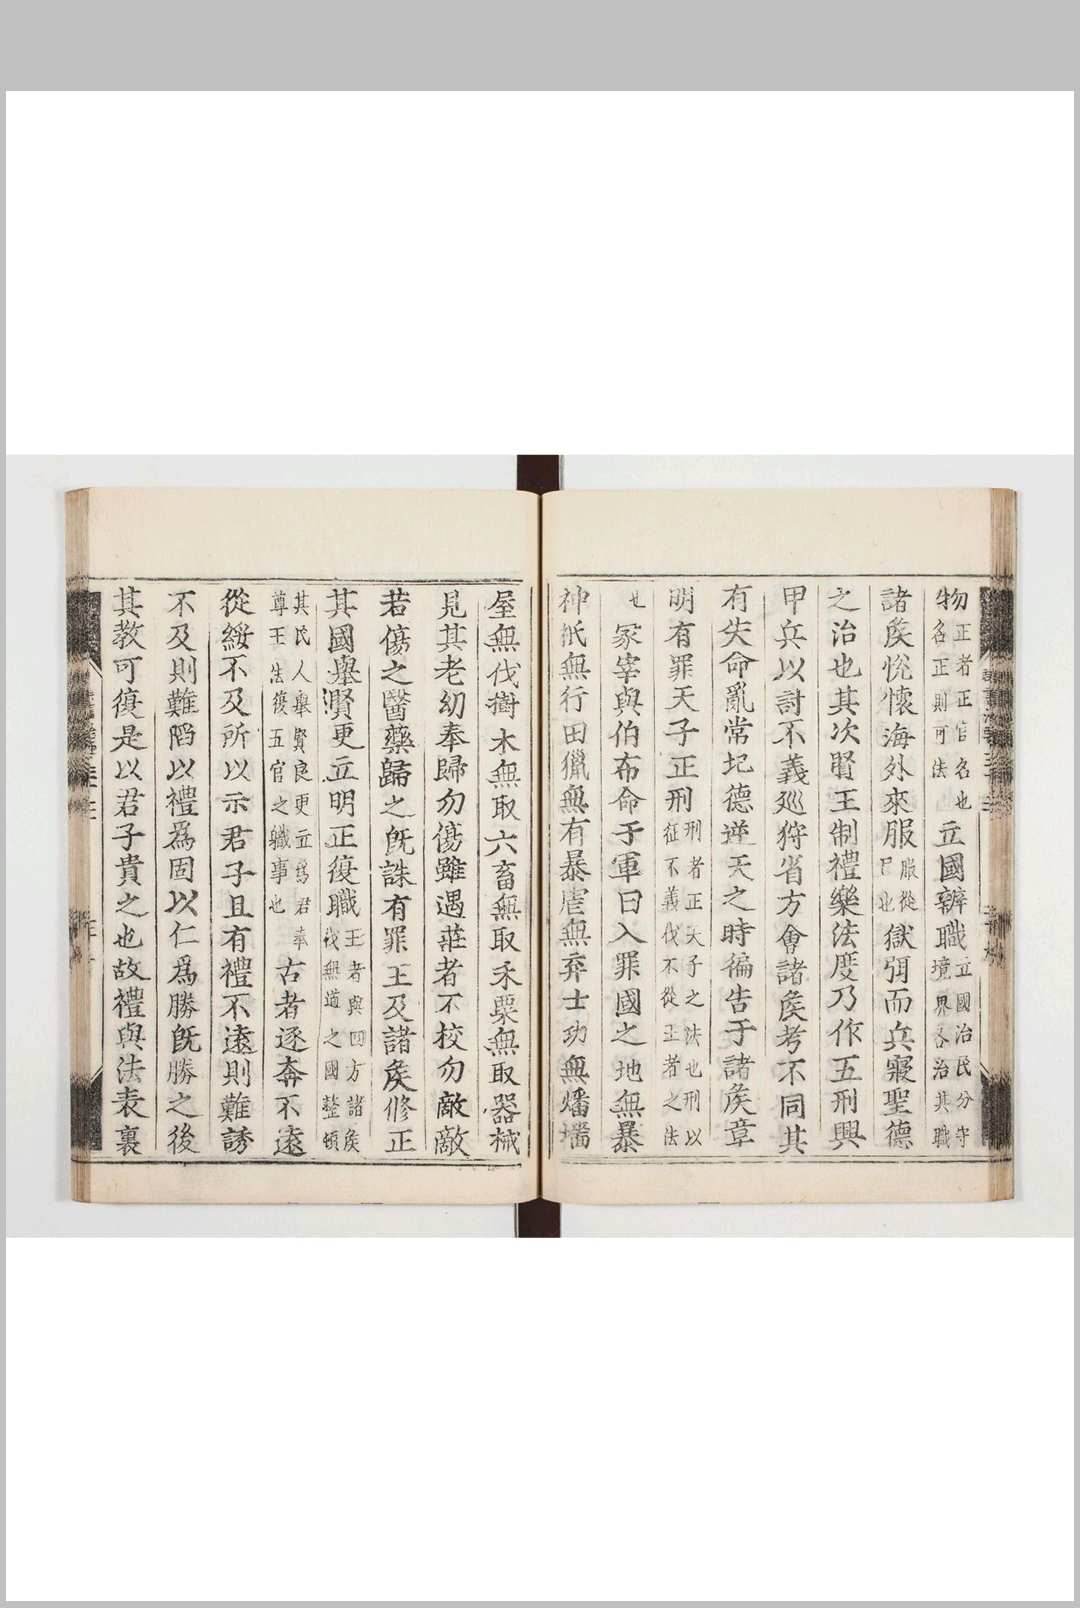 物正者正官名也名正則可法立國辨職立國治民分守境界各治其職
諸侯悅懷海外來服服從已也獄弭而兵寢聖德
之治也其次賢王制禮樂法度乃作五刑興
甲兵以討不義廵狩省方會諸侯考不同其
有失命亂常圮德逆天之時徧告于諸侯章
明有罪天子正刑刑者正天子之法也刑以征不義伐不從王者之法
也冢宰與伯布命于軍曰入罪國之地無暴
神祇無行田獵無有暴虐無弃士功無燔墻
屋無伐樹木無取六畜無取禾粟無取器械
見其老幼奉歸勿傷雖遇莊者不校勿敵敵
若傷之醫藥歸之旣誅有罪王及諸侯修正
其國舉賢更立明正復職王者與四方諸侯伐無道之國整頓
其民人舉賢良更立爲君奉尊王法復五官之職事也古者逐奔不遠
從綏不及所以示君子且有禮不遠則難誘
不及則難陷以禮爲固以仁爲勝旣勝之後
其教可復是以君子貴之也故禮與法表裏